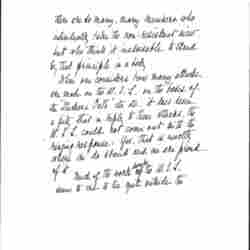 there are so many, many members who
take the non-resistant view
but who think it inadvisable to stand
by that principle in a body
When one considers how many attacks
are made on the W. I. L. on the basis of
the it has been
a pity that in reply to these attacks, the
W. I. L. could not come out with the
ringing response: Yes, that is exactly
where we do stand and we are proud
of it
Much of the work the W. I. L.
seems to me to lie quite outside the